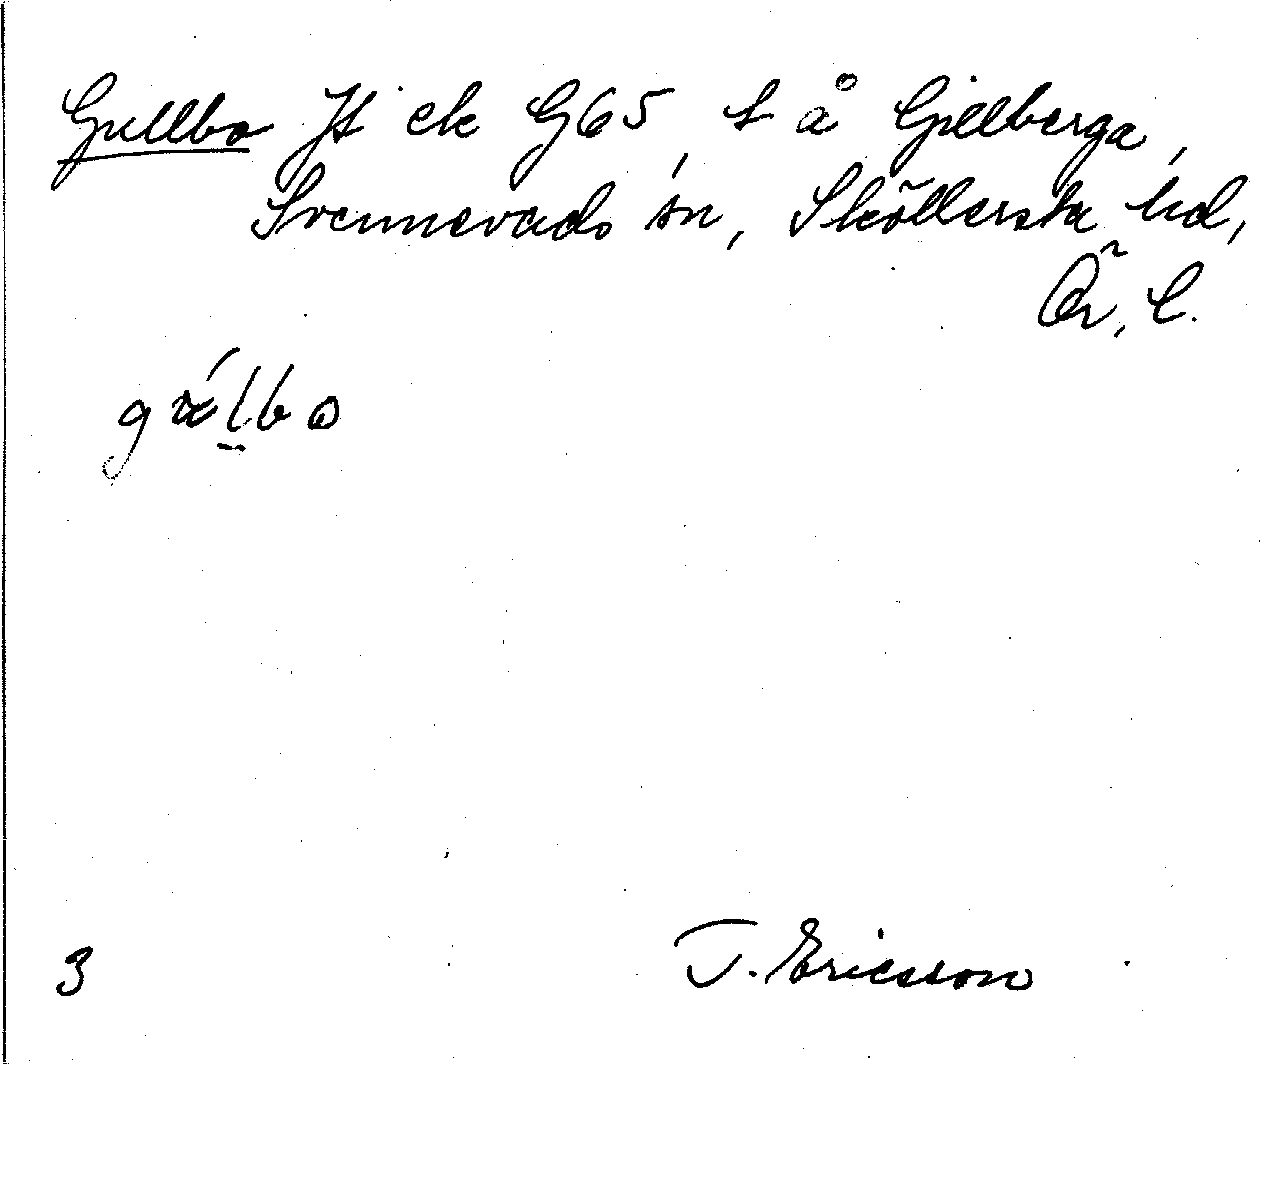 Gullbo Jt ek G65, t å Gillberga,
Svennevads sn, Sköllersta hd,
Ör. l.
3
T. Ericsson